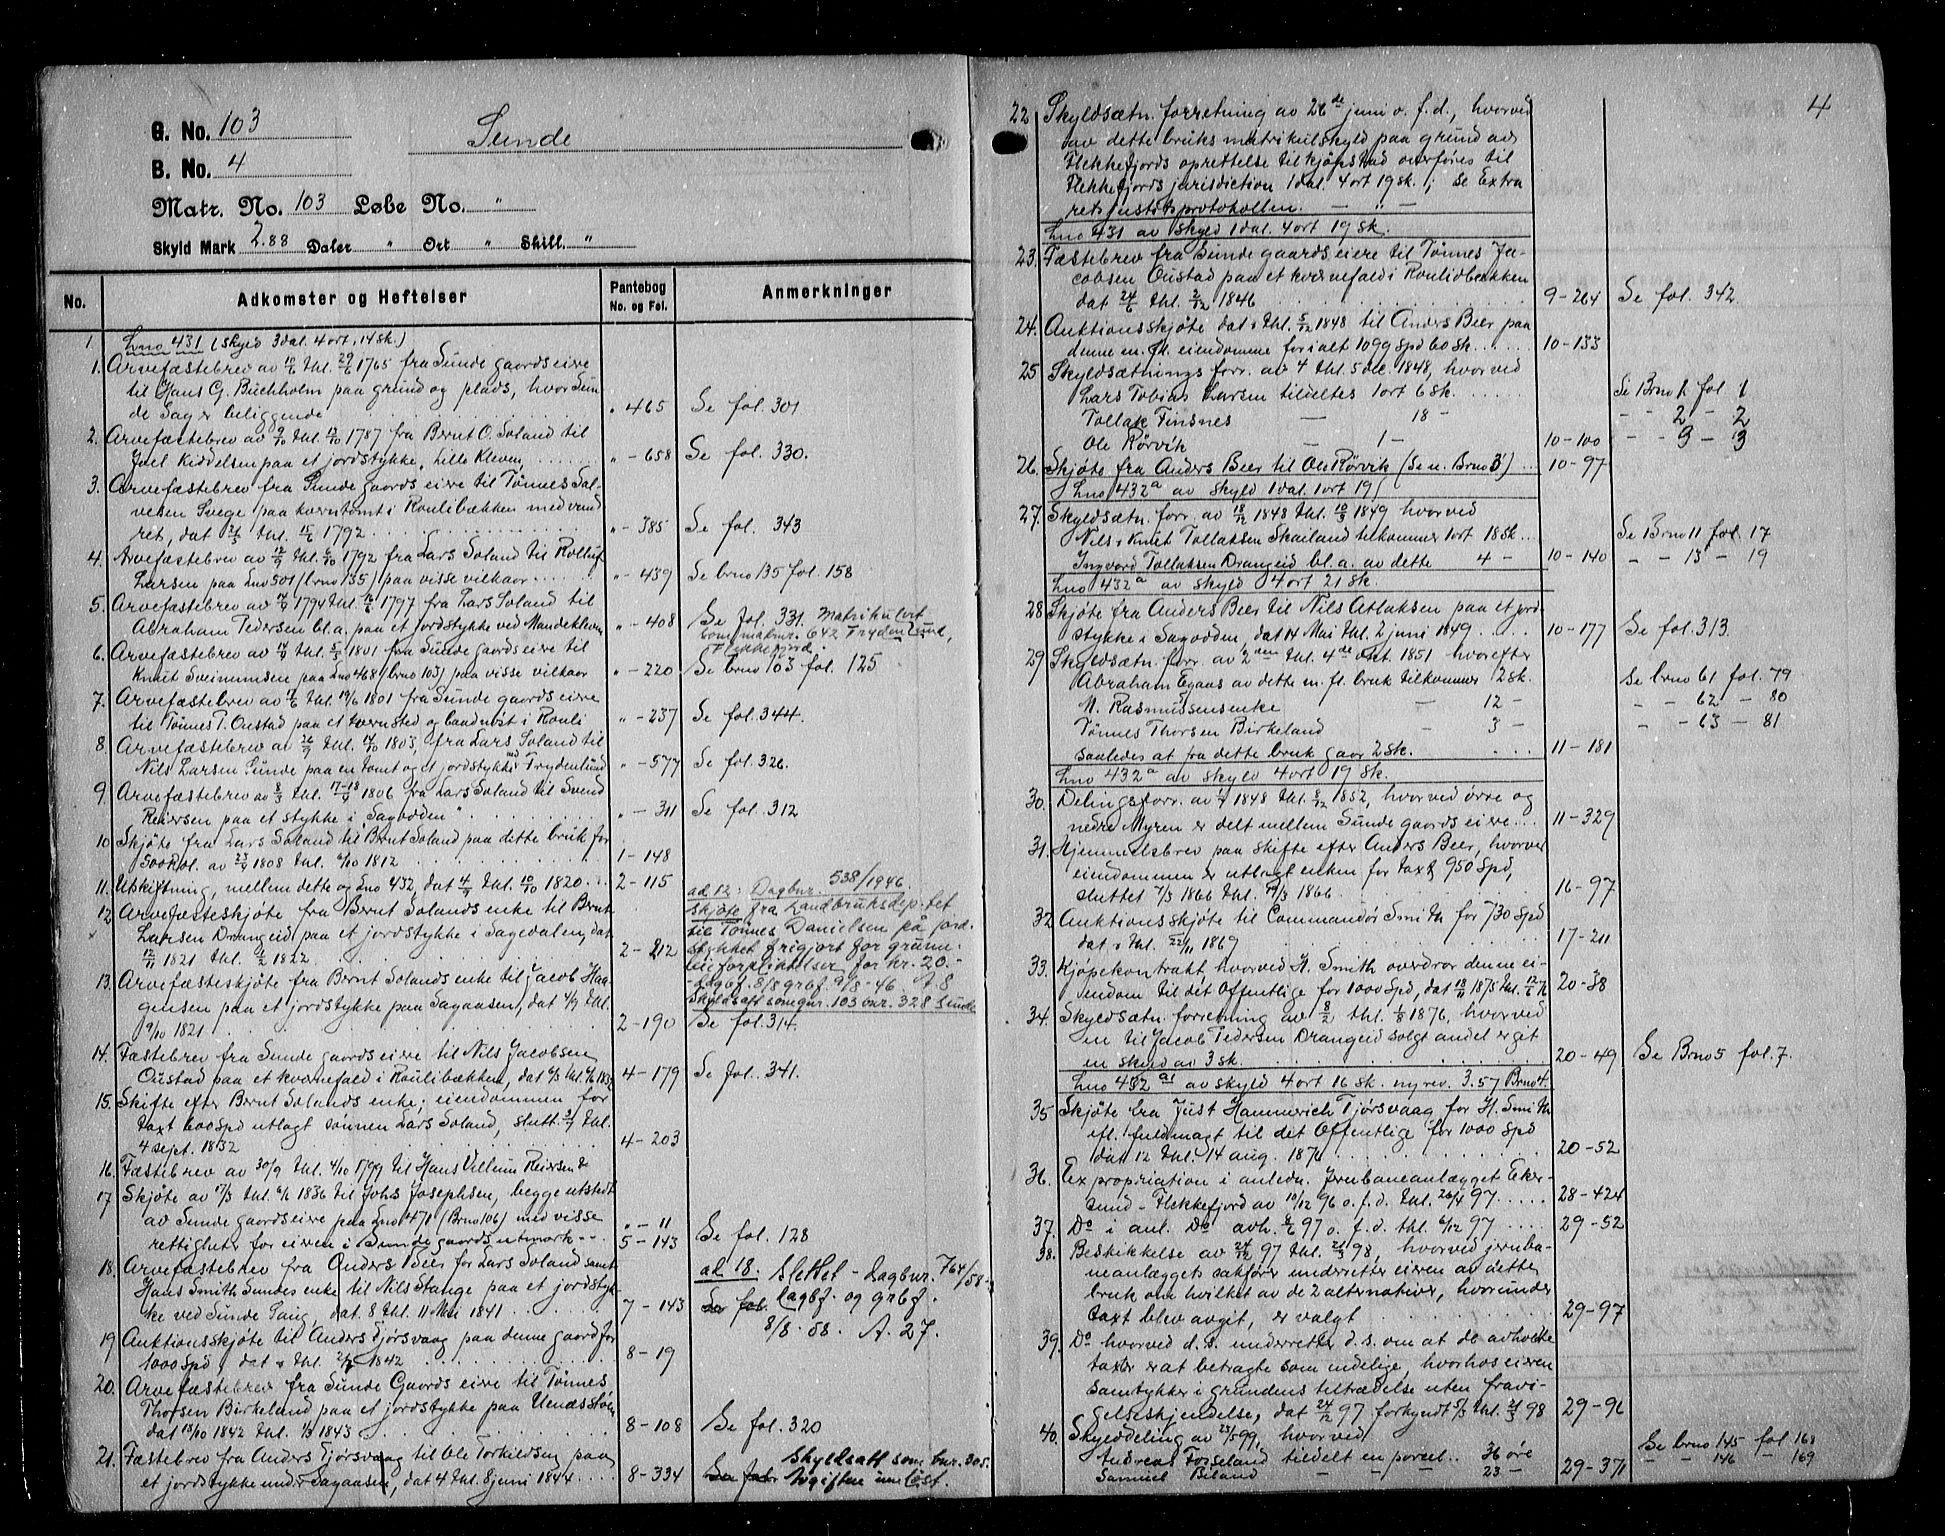 G. No. 103
Sunde
B. No. 4
Matr. No. 103 Løbe No. "
Skyld Mark 2.88 Daler " Ort " Skill. "
No. Adkomster og Heftelser Pantebog No. og Fol. Anmerkninger
1. Lno 431 (Skyld 3 dal. 4 ort. 14 sk.)
1. Arvefæstebrev av 10/6 thl. 29/6 1765 fra Sunde gaards eiere
til Hans G. Buchholm paa grund og plads, hvor Sun
de Sag er beliggende " 465 Se fol. 301
2. Arvefæstebrev av 9/10 thl. 12/10 1787 fra Bernt O. Soland til
Joel Kiddelsen paa et jordstykke, Lille Kleven, " - 658 Se fol. 330.
3. Arvefæstebrev fra Sunde gaards eiere til Tønnes Sal-
vesen Svege paa kverntomt i Roulibækken med vand
ret, dat 21/5 thl. 15/6 1792 " - 385 Se fol. 343
4. Arvefæstebrev av thl. 1792 fra Lars Soland til Rolluf
Larsen paa Lno 501 (brno 135) paa visse vilkaar " - 439 Se brno 135 fol. 158
5. Arvefæstebrev av 1794 thl. 1797 fra Lars Soland til
Abraham Pedersen bl.a. paa et jordstykke ved Mandekleven " - 408 Se fol. 331. Matrikulert
som matrnr. 642 Frydenlund,
Flekkefjord.
6. Arvefæstebrev av thl. 1801 fra Sunde gaards eiere til
Knut Sveinunsen paa Lno 468 (brno 103) paa visse vilkaar " - 220 Se brno 103 fol. 125
7. Arvefæstebrev av thl. 19/6 1801 fra Sunde gaards eiere
til Tønnes P. Oustad paa et kvernsted og vandnøst i Rouli " - 237 Se fol. 344.
8. Arvefæstebrev av 26/9 thl. 17/10 1803, fra Lars Soland til
Nils Larsen Sunde paa en tomt og et jordstykke ved Frydenlund " - 577 Se fol. 326.
9. Arvefæstebrev av 8/3 thl. 17-18/9 1806 fra Lars Soland til Svend
Reiersen paa et stykke i Sagodden " " - 311 Se fol. 312
10 Skjøte fra Lars Soland til Bernt Soland paa dette bruk for
500 Rdl. av 23/9 1808 thl. 6/10 1812 1 - 148
11. Utskiftning, mellem dette og Lno 432, dat 4/9 thl. 10/10 1820 2 - 115
12 Arvefæsteskjøte fra Bernt Solands enke til Bernt
Larsen Drangeid paa et jordstykke i Sagedalen, dat
12/11 1821 thl. 1822 2 - 212
ad 12: Dagbnr. 538/1946.
Skjøte fra Landbruksdep-tet
til Tønnes Danielsen på jord-
stykket frigjort for grunn-
eieforpliktelser for kr. 20.-
dagbf. 8/8 grbf. 9/8-46. A. 8
Skyldsatt som gnr. 103 bnr. 328 Sunde
13. Arvefæsteskjøte fra Bernt Solands enke til Jacob Haa-
gensen paa et jordstykke paa Sagaasen, dat 4/9 thl.
9/10 1821 2 - 190 Se fol. 314.
14. Fæstebrev fra Sunde gaards eiere til Nils Jacobsen
Oustad paa et kvernefald i Roulibækken, dat 6/3 thl. 1832 4 - 179 Se fol. 341.
15. Skifte efter Bernt Solands enke; eiendommen for
taxt 600 Spd utlagt sønnen Lars Soland, slutt. 3/7 thl.
4 sept. 1832 4 - 203
16. Fæstebrev av 30/9 thl. 4/10 1799 til Hans Villum Reiersen &
17 Skjøte av 17/3 thl. 6/6 1836 til Johs Josephsen, begge utstedt
av Sunde gaards eiere paa Lno 471 (Brno 106) med visse " - 11
rettigheter for eieren i Sunde gaards utmark -- 5 - 143 Se fol. 128
18. Arvefæstebrev fra Anders Beer for Lars Soland samt
Hans Smith Sundes enke til Nils Stange paa et jordstyk-
ke ved Sunde Saug, dat. 8 thl. 11 Mai 1841 7 - 143
ad 18. Slettet - dagbnr. 764/58 -
Se fol. dagbf. og grbf.
8/8. 58. A. 27.
19 Auktionsskjøte til Anders Tjørsvaag paa denne gaard for
1000 Spd, dat & thl. 2/7 1842 8 - 19
20. Arvefæstebrev fra Sunde Gaards eiere til Tønnes
Thorsen Birkeland paa et jordstykke paa Uenæsstøen
dat 13/10 1842 thl. 1/3 1843 8 - 108 Se fol. 320
21. Fæstebrev fra Anders Tjørsvaag til Ole Torkildsen paa
et jordstykke under Sagaasen, dat 4 thl. 8 juni 1844 8 - 334
Skyldsatt som bnr. 305.
Se fol. Avgiften innløst.
4
22 Skyldsætn. forretning av 26de juni o. f. d., hvorved
av dette bruks matrikulskyld paa grund av
Flekkefjords oprettelse til kjøpstad overføres til
Flekkefjords jurisdiction 1 dal. 4 ort 19 sk. 1; Se Extra
retsjustitsprotokollen. - " -
Lno 431 av skyld 1 dal. 4 ort 19 sk.
23. Fæstebrev fra Sunde gaards eiere til Tønnes Ja-
cobsen Oustad paa et kvernefald i Roulidbækken
dat 24/6 thl. 2/12 1846 9 - 264 Se fol. 342
24. Auktionsskjøte dat & thl. 5/12 1848 til Anders Beer paa
denne m. fl. eiendomme for ialt 1099 Spd 60 Sk. 10 - 133
25 Skyldsætnings forr. av 4 thl. 5 dec. 1848, hvorved
Lars Tobias Larsen tildeltes 1 ort 6 Sk. Se Brno 1 fol 1
Tollak Finsnes - 18 - - - 2 - 2
Ole Rørvik - 1 - 10 - 100 - - 3 - 3
26. Skjøte fra Anders Beer til Ole Rørvik (Se u. Brno 3) 10 - 97
Lno 432a av skyld 1 dal. 1 ort 19 (
27. Skyldsætn. forr. av 18/12 1848 thl. 10/3 1849 hvorved
Nils & Knut Tollaksen Skailand tilkommer 1 ort 18 Sk. Se Brno 11 fol. 17
Ingvord Tollaksen Drangeid bl. a. av dette 4 - 10 - 140 - - 13 - 19
Lno 432a av skyld 4 ort 21 Sk.
28 Skjøte fra Anders Beer til Nils Atlaksen paa et jord-
stykke i Sagodden, dat 14 Mai thl. 2 juni 1849 10 - 177 Se fol. 313.
29 Skyldsætn. forr. av 2den thl. 4de okt. 1851 hvorefter
Abraham Egaas av dette m. fl. bruk tilkommer 2 sk. Se brno 61 fol. 79
M. Rasmussens enke - 12 - - - 62 - 80
Tønnes Thorsen Birkeland - 3 - - - 63 - 81
saaledes at fra dette bruk gaar 2 Sk. 11 - 181
Lno 432a av skyld 4 ort 19 Sk.
30. Delingsforr. av 1848 thl. 8/12 1852, hvorved øvre og
nedre Myren er delt mellem Sunde gaards eiere 11 - 329
31. Hjemmelsbrev paa skifte efter Anders Beer, hvorved
eiendommen er utlagt enken for taxt 950 Spd,
sluttet 7/3 1866 thl. 1866 16 - 97
32 Auktionsskjøte til Commandør Smith for 730 Spd
dat & thl. 22/11 1869 17 - 211
33. Kjøpekontrakt hvorved H. Smith overdrar denne ei-
endom til det Offentlige for 1000 Spd, dat 18/11 1875 thl. 12/6 76 20 - 38
34. Skyldsætn. forretning av 8/2 thl. 1/8 1876, hvorved
en til Jacob Pedersen Drangeid solgt andel er git
en skyld av 3 sk. 20 - 49 Se Brno 5 fol. 7.
Lno 432a1 av skyld 4 ort 16 sk. ny rev. 3.57 Brno 4.
35 Skjøte fra Just Hammerich Tjørsvaag for H. Smith
efl. fuldmagt til det Offentlige for 1000 Spd
dat 12 thl. 14 aug. 1876 20 - 52
36. Expropriation i anledn. Jernbaneanlægget Eker-
sund - Flekkefjord av 10/12 96 o. f. d. thl. 26/4 97 28 - 424
37. Do i anl. Do avh. 97 o. f. d. thl. 6/12 97 29 - 52
38. Beskikkelse av 24/12 97 thl. 21/3 98, hvorved jernba-
neanlæggets sakfører underretter eieren av dette
bruk om hvilket av de 2 alternativer, hvorunder
taxt blev avgit, er valgt 29 - 97
39. Do hvorved d. s. underretter d. s. om at de avholdte
taxter er at betragte som endelige, hvorhos eieren
samtykker i grundens tiltrædelse uten fravi-
gelseskjendelse, dat 24/12 97 forkyndt 5/3 thl. 21/3 98 29 - 96
40. Skylddeling av 25/5 99, hvorved
Andreas Forseland tildelt en parcel 36 øre Se brno 145 fol 168
Samuel Biland - - - 23 - 29 - 371 - - 146 - 169